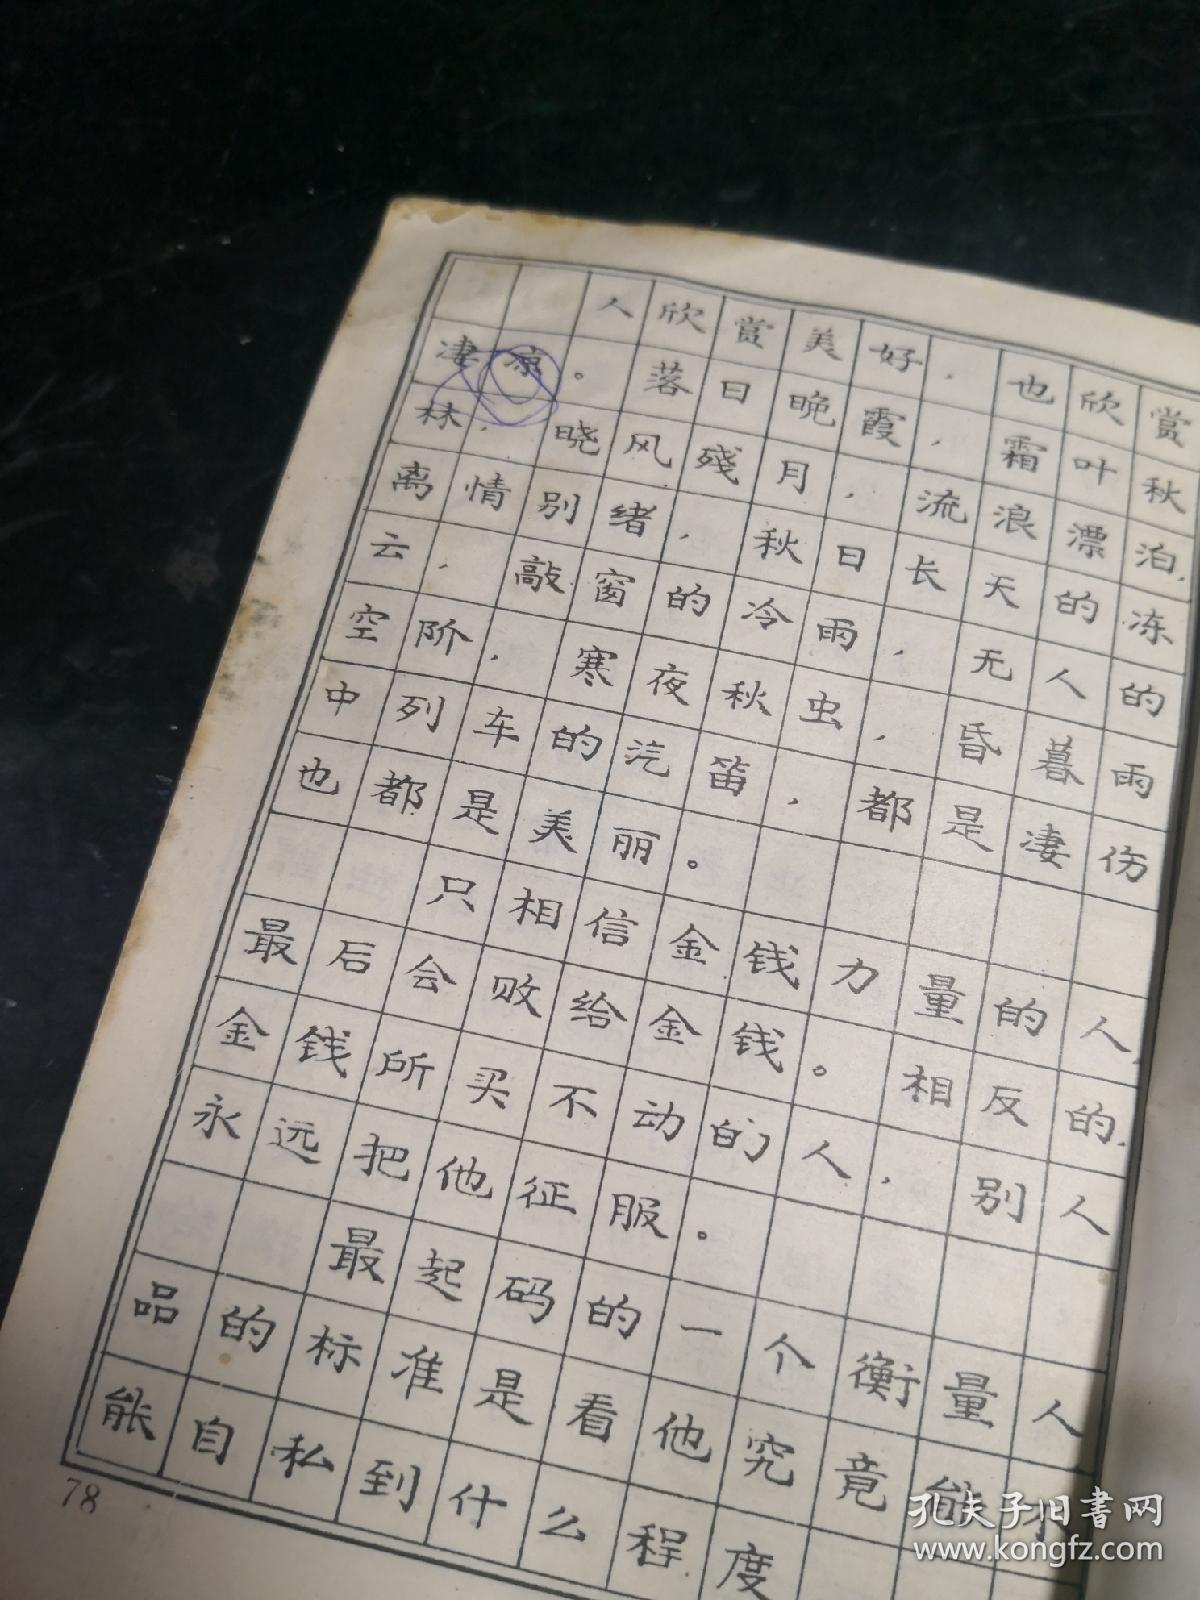 人欣赏美好，也欣赏
凄凉。落日晚霞，霜叶秋
林，晓风残月，流浪漂泊，
离情别绪，秋日长天的冻
云，敲窗的冷雨，无人的
空阶，寒夜秋虫，昏暮雨
中列车的汽笛，都是凄伤
也都是美丽。
只相信金钱力量的人，
最后会败给金钱。相反的，
金钱所买不动的人，别人
永远把他征服。
最起码的一个衡量人
品的标准是看他究竟能
能自私到什么程度
78
孔夫子旧书网
www.kongfz.com